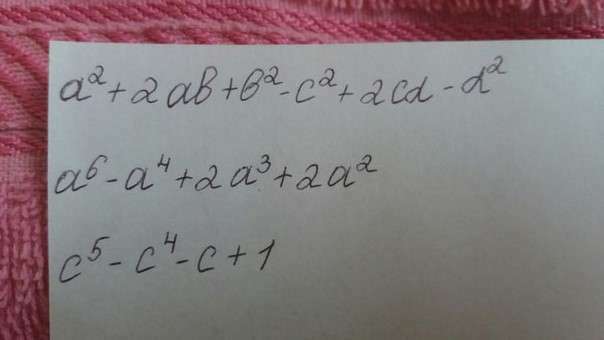 a² + 2ab + b² - c² + 2cd - d²
a⁶ - a⁴ + 2a³ + 2a²
c⁵ - c⁴ - c + 1